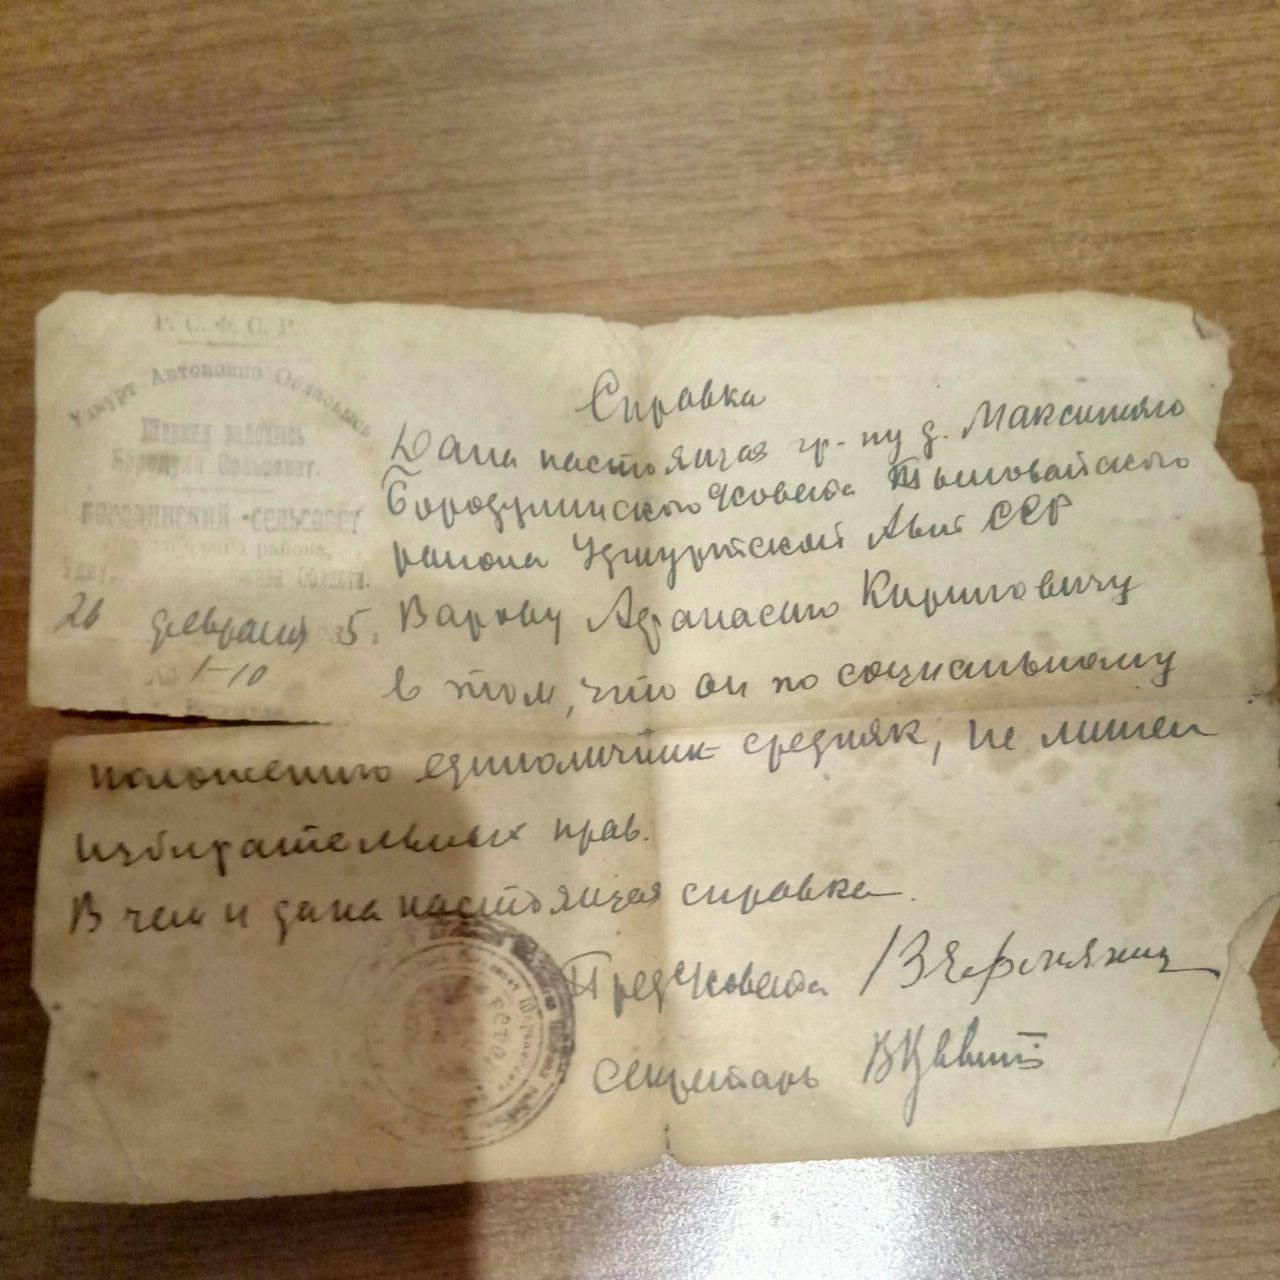 Р. С. Ф. С. Р.
Удмурт Автономно Обласьысь
Шаркан районысь
Бородули Сельсовет.
БОРОДИНСКИЙ СЕЛЬСОВЕТ
района,
Области.
26 февраля 35 г.
№ 1-10
Справка
Дана настоящая гр-ну д.
Бородулинского с/совета Тыловайского
района Удмуртской Авт ССР
Варову Афанасию Кириловичу
в том, что он по социальному
положению единоличник середняк, не лишен
избирательных прав.
В чем и дана настоящая справка.
Пред с/совета
Секретарь